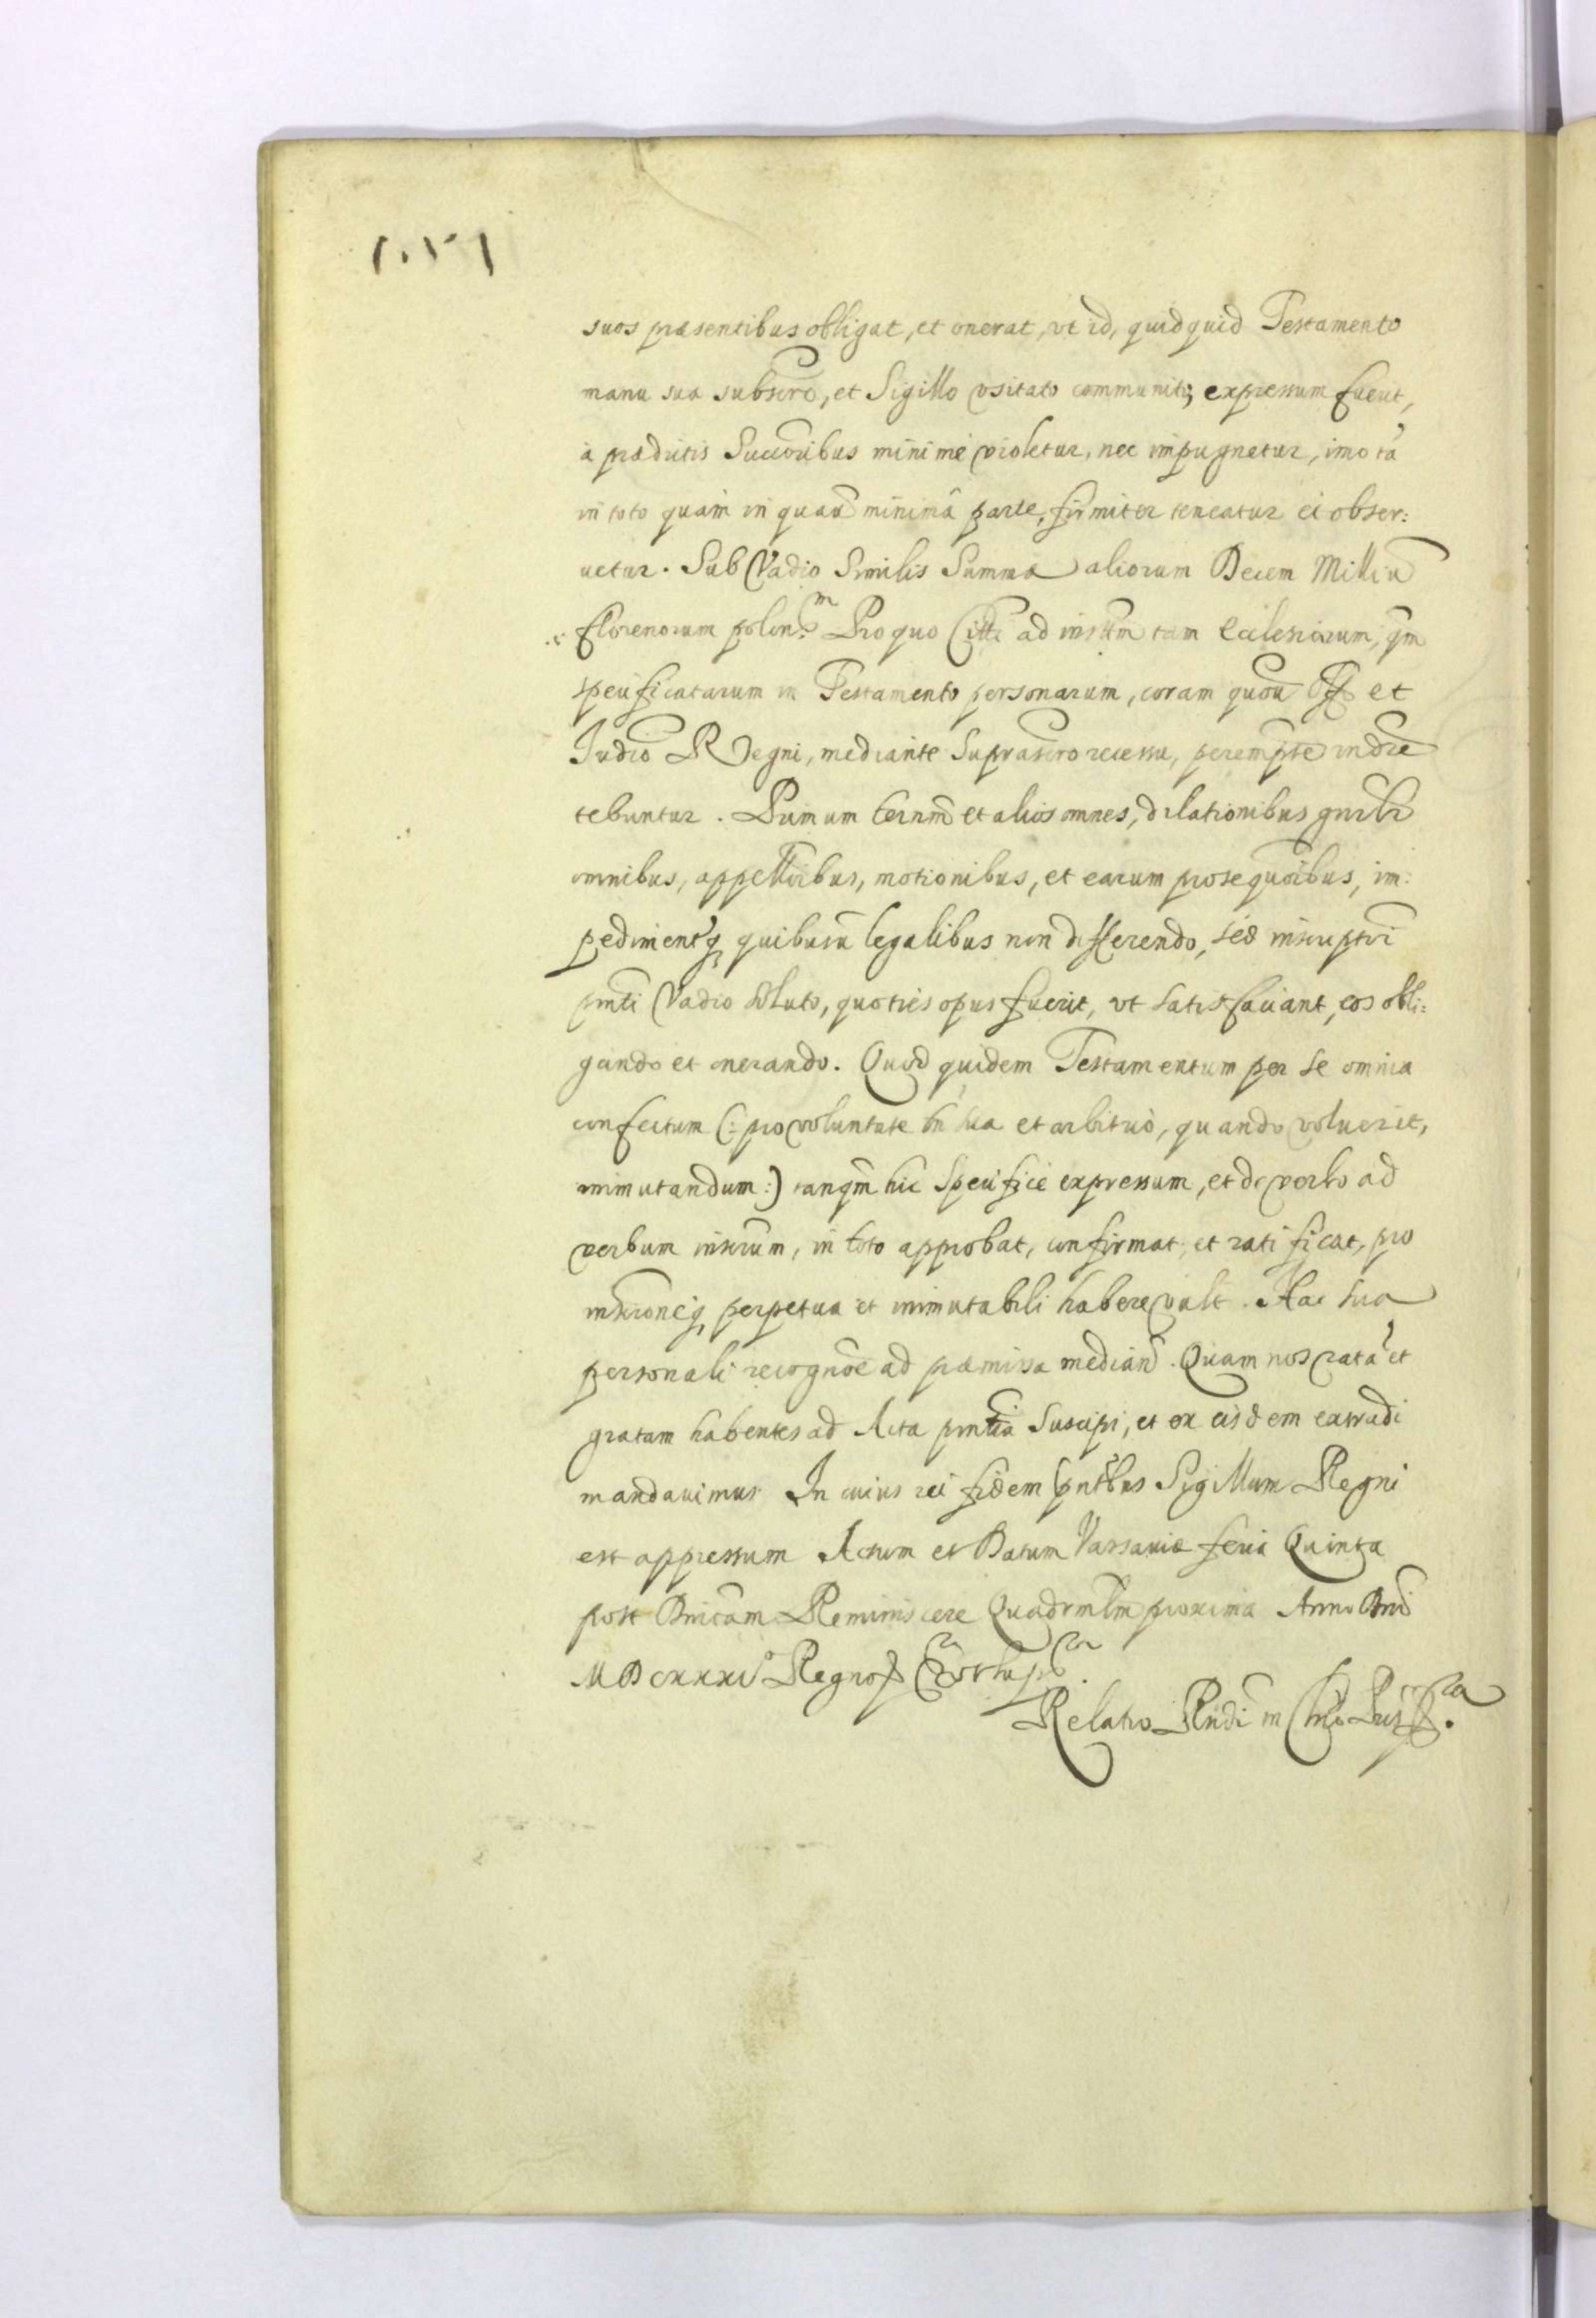 suos præsentibus obligat, et onerat, vt id, quidquid Testamento
manu sua subscro, et Sigillo vsitato communito expressum fuerit,
à prædictis Succoribus minimè violetur, nec impugnetur, imo tã
in toto quàm in quaũ minimâ parte, firmiter teneatur et obser:
uetur. Sub Vadio Similis Summæ aliorum Decem Milliũ
florenorum polon. Pro quo Citti ad instm tam Ecclesiarum, qm
specificatarum in Testamento personarum, coram quou Offo et
Judio Regni, mediante Suprascro recessu, perempte indie
tebuntur. Primum termm et alios omnes, dilationibus gnrlr
omnibus, appellibus, motionibus, et earum prosequoibus, im:
pedimentq quibusu legalibus non differendo, sed inscriptri
pnti Vadio soluto, quoties opus fuerit, vt satisfaciant, eos obli:
gando et onerando. Quod quidem Testamentum per se omnia
confectum (: pro voluntate tn sua et arbitrio, quando voluerit,
immutandum :) tanqm hic Specificè expressum, et de verbo ad
verbum insrum, in toto approbat, confirmat, et ratificat, pro
perpetua et immutabili habere vult. Hac sua
personali recognoe ad præmissa median. Quam nos ratã et
gratam habentes ad Acta pntia Suscipi, et ex eisdem extradi
mandauimus In cuius rei fidem pntbus Sigillum Regni
est appressum Actum et Datum Varsauiæ feria Quinta
post Dnicam Reminiscere Quadrmlm proxima Anno Dni
Regno
Relatio Rndi in Chro Pris